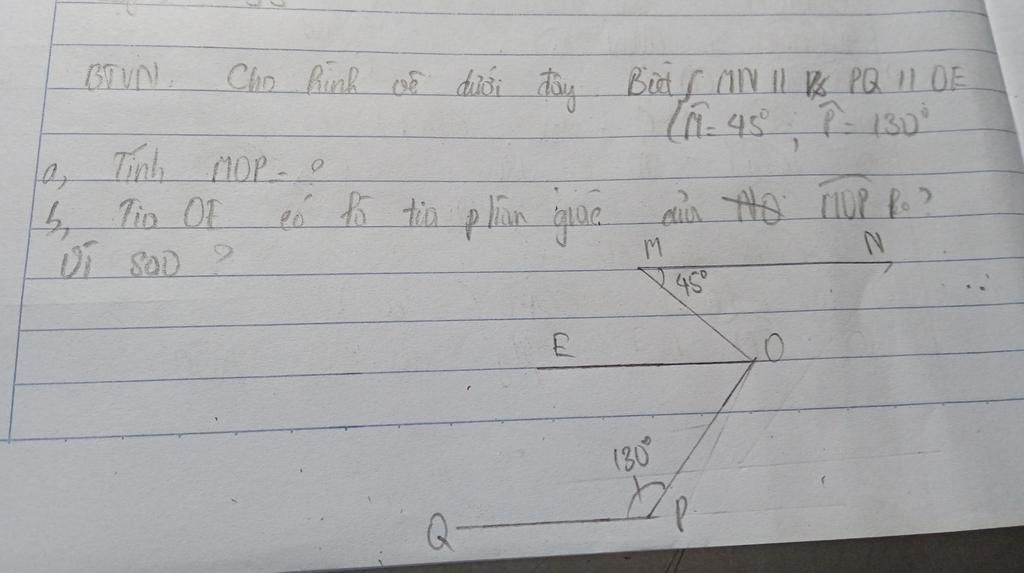 BTVN. Cho hình vẽ dưới đây Biết { MN // PQ // OE
M̂ = 45° ; P̂ = 130°
a, Tính MOP = ?
b, Tia OE có là tia phân giác của MOP ko?
Vì sao ?
M N
45°
E O
130°
Q P